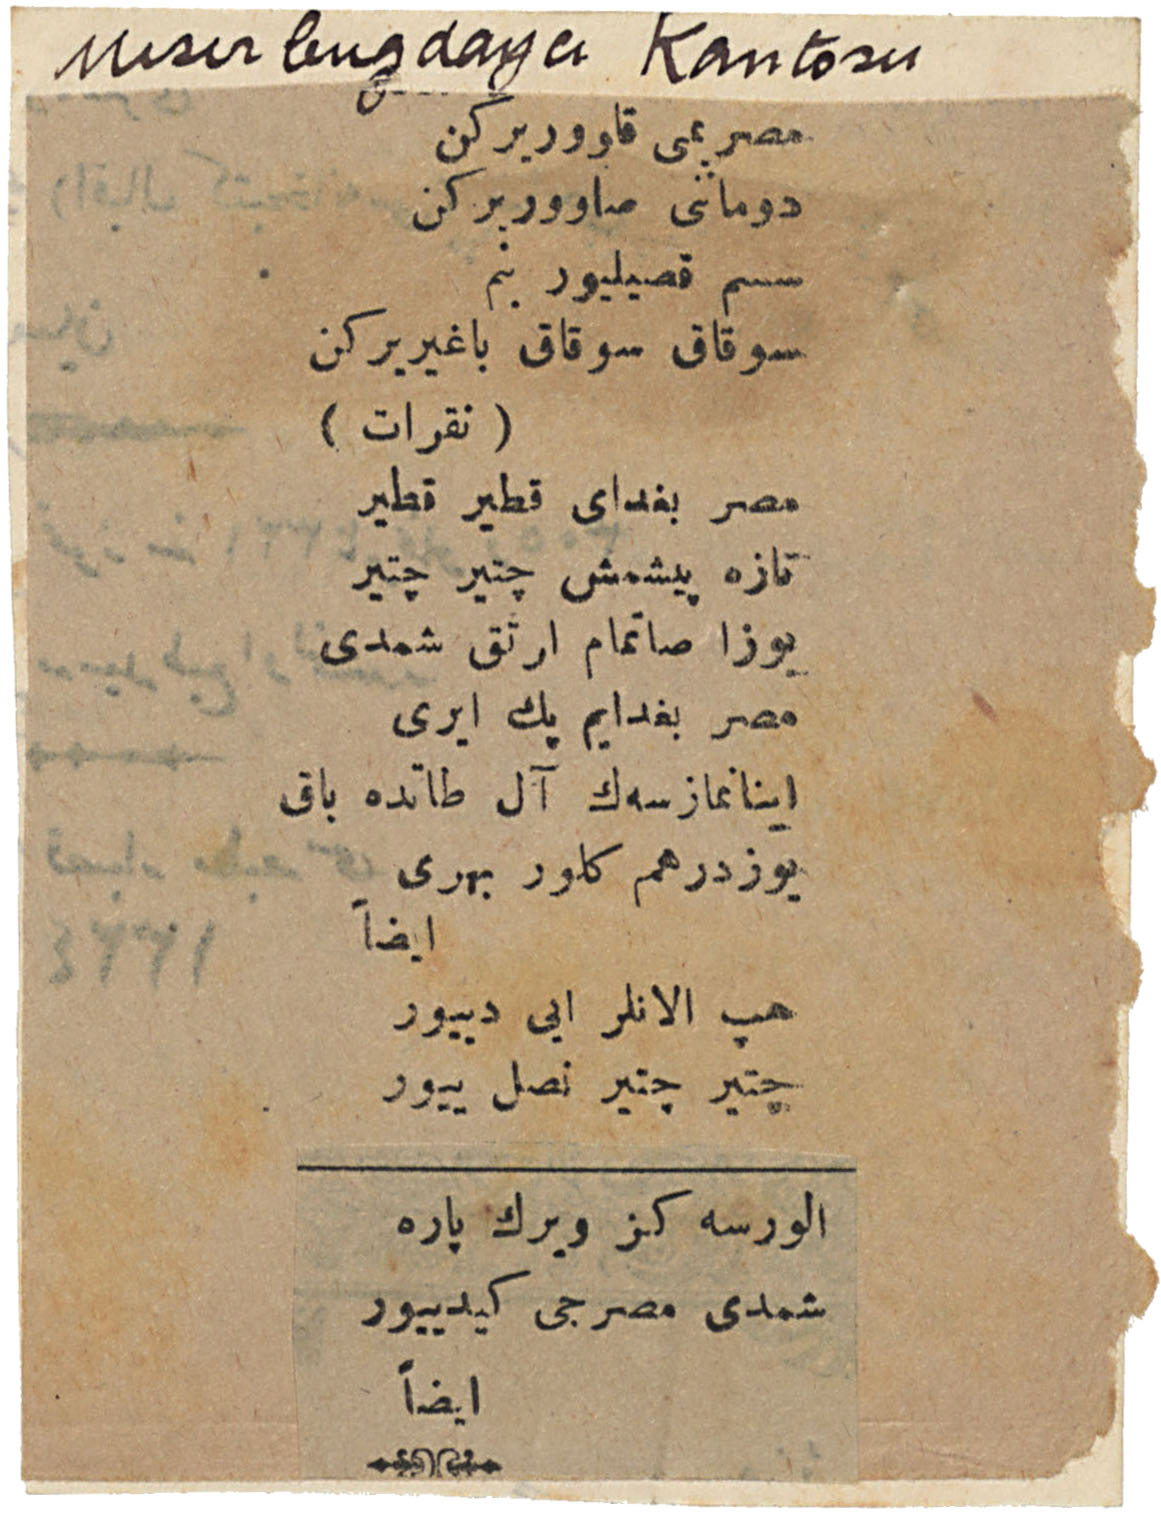 Mısır buğdaycı Kantosu
مصریمی قاووریركن
دومانی صاووریركن
سسم قصیلیور بنم
سوقاق سوقاق باغیریركن
( نقرات )
مصر بغدای قطیر قطیر
تازه پیشمش چتیر چتیر
یوزا صاتمام ارتق شمدی
مصر بغدایم پك ایری
اینانمازسه‌ك آل طاتده باق
یوزدرهم كلور بهری
ایضاً
هپ الانلر ایی دییور
چتیر چتیر نصل ییور
الورسه كز ویرك پاره
شمدی مصرجی كیدییور
ایضاً